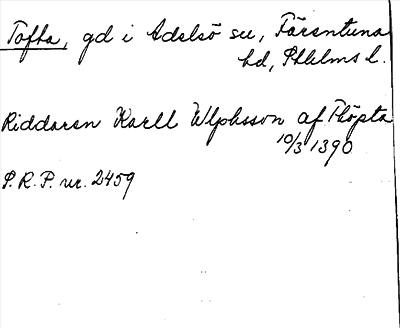 Tofta, gd i Adelsö sn, Färentuna
hd, Sthlms l.
Riddaren Karll Wlphsson af Thöpta
10/3 1390
S.R.P. nr. 2459